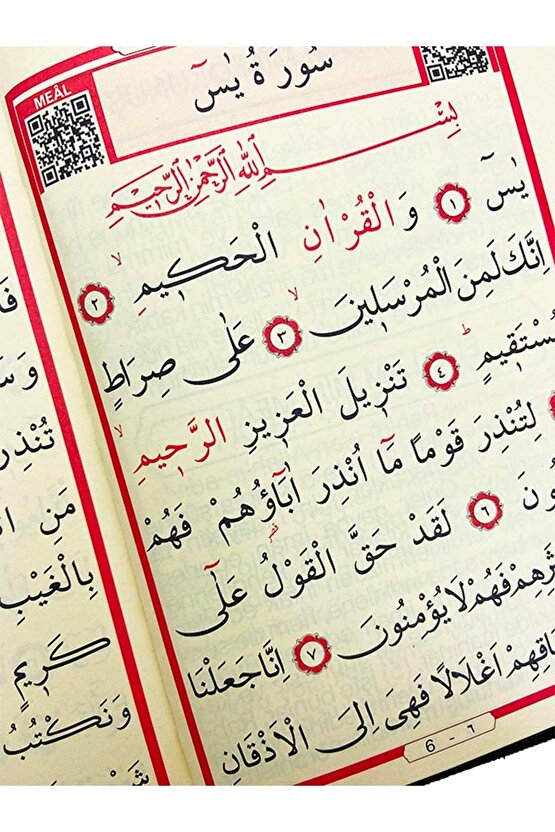 MEÂL
سُورَةُ يٰسٓ
بِسْمِ اللّٰهِ الرَّحْمٰنِ الرَّحٖيمِ
يٰسٓ ١ وَالْقُرْاٰنِ الْحَكٖيمِۙ ٢
اِنَّكَ لَمِنَ الْمُرْسَلٖينَۙ ٣ عَلٰى صِرَاطٍ
مُسْتَقٖيمٍؕ ٤ تَنْزٖيلَ الْعَزٖيزِ الرَّحٖيمِۙ
لِتُنْذِرَ قَوْمًا مَٓا اُنْذِرَ اٰبَٓاؤُ۬هُمْ فَهُمْ
ونَ ٦ لَقَدْ حَقَّ الْقَوْلُ عَلٰٓى
ثَرِهِمْ فَهُمْ لَا يُؤْمِنُونَ ٧ اِنَّا جَعَلْنَا
اقِهِمْ اَغْلَالًا فَهِيَ اِلَى الْاَذْقَانِ
6 - ٦
تُنْذِرُ
بِالْغَيْبِ
كَرٖيمٍ
وَنَكْتُبُ